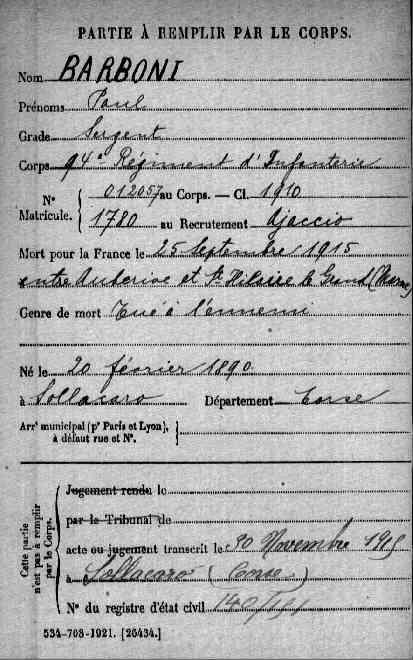 PARTIE À REMPLIR PAR LE CORPS.
Nom BARBONI
Prénoms Paul
Grade Sergent
Corps 94e Régiment d'Infanterie
N° Matricule. 012057 au Corps. — Cl. 1910
1780 au Recrutement Ajaccio
Mort pour la France le 25 Septembre 1915
entre Auberive et St Hilaire le Grand (Marne)
Genre de mort Tué à l'ennemi
Né le 20 février 1890
à Sollacaro Département Corse
Arrt municipal (pr Paris et Lyon), à défaut rue et N°.
Cette partie n'est pas à remplir par le Corps.
Jugement rendu le
par le Tribunal de
acte ou jugement transcrit le 30 Novembre 1915
à Sollacaro (Corse)
N° du registre d'état civil
534-708-1921. [26434.]